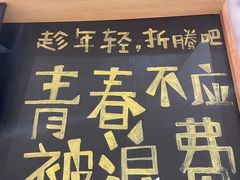 趁年轻，折腾吧
青春不应
被浪费